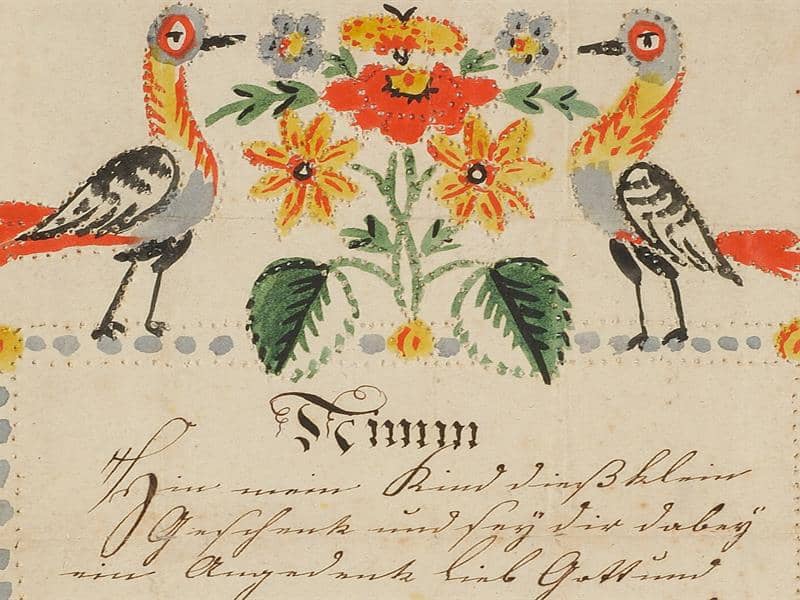 Nimm
Hin mein Kind dieß klein
Geschenk und sey dir dabey
ein Angedenk Lieb Gott und